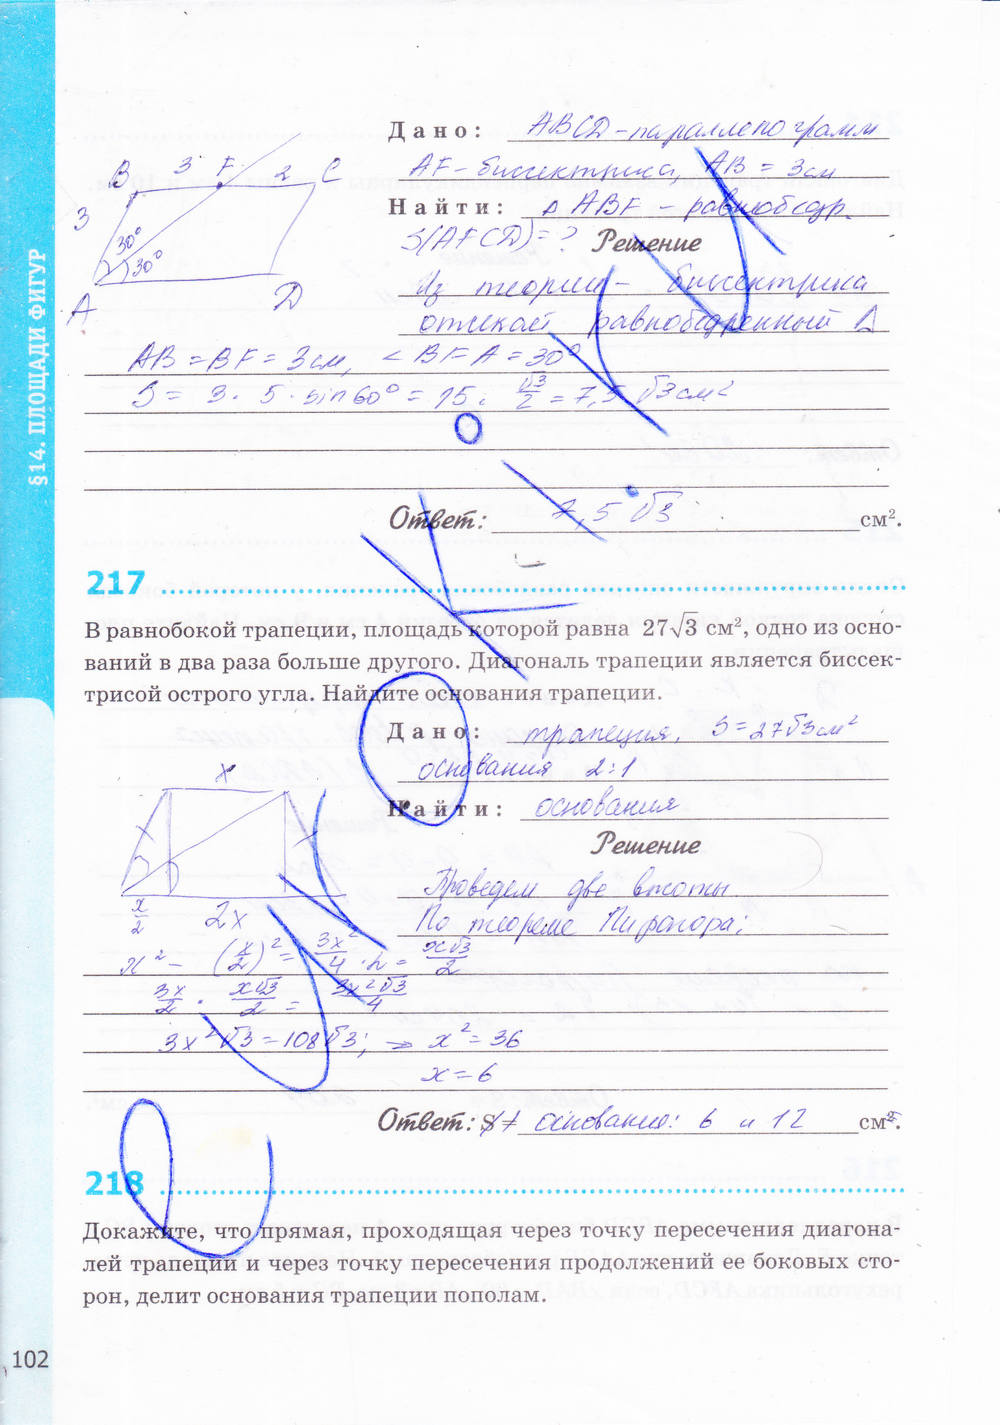 §14. ПЛОЩАДИ ФИГУР
Дано: ABCD - параллелограмм
AF - биссектриса, AB = 3 см
Найти: △ ABF - равнобедр.
S(AFCD) = ?
Решение
B 3 F 2 C
3
30°
30°
A D
Из теории - биссектриса
отсекает равнобедренный △
AB = BF = 3 см, < BFA = 30°
S = 3 · 5 · sin 60° = 15 · √3/2 = 7,5 √3 см²
Ответ: 7,5 √3 см².
217
В равнобокой трапеции, площадь которой равна 27√3 см², одно из осно-
ваний в два раза больше другого. Диагональ трапеции является биссек-
трисой острого угла. Найдите основания трапеции.
Дано: трапеция, S = 27√3 см²
основания 2:1
Найти: основания
Решение
x
x/2 2x
Проведем две высоты
По теореме Пифагора:
x² - (x/2)² = 3x²/4 · h = x√3/2
3x/2 · x√3/2 = 3x²√3/4
3x²√3 = 108√3; → x² = 36
x = 6
Ответ: S = основания: 6 и 12 см².
218
Докажите, что прямая, проходящая через точку пересечения диагона-
лей трапеции и через точку пересечения продолжений ее боковых сто-
рон, делит основания трапеции пополам.
102